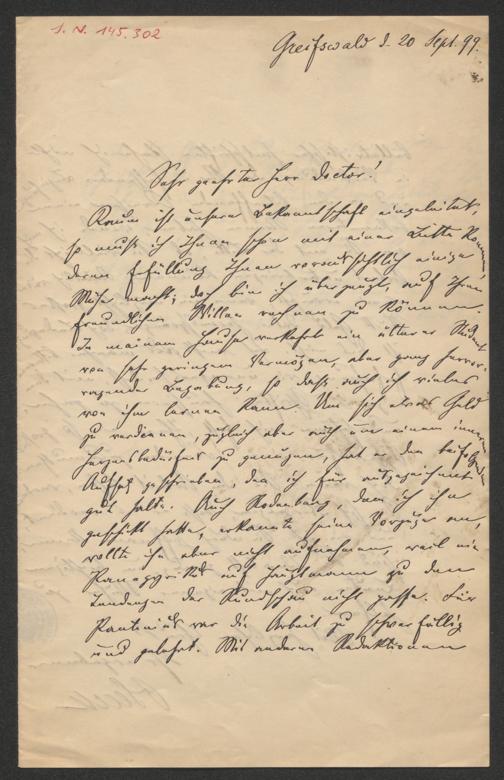 I. N. 145.302
Greifswald d. 20 Sept. 99.
Sehr geehrter Herr Doctor!
Kaum ist unsere Bekanntschaft eingeleitet,
so muß ich Ihnen schon mit einer Bitte kommen,
deren Erfüllung Ihnen voraussichtlich einige
Mühe macht; doch bin ich überzeugt, auf Ihren
freundlichen Willen rechnen zu können.
In meinem Hause verkehrt ein älterer Student
von sehr geringem Vermögen, aber ganz hervor-
ragender Begabung, so daß auch ich vieles
von ihm lernen kann. Um sich etwas Geld
zu verdienen, zugleich aber auch um einem inneren
Herzensbedürfnis zu genügen, hat er den beifolgenden
Aufsatz geschrieben, den ich für ausgezeichnet
gut halte. Auch Rodenberg, dem ich ihn
geschickt hatte, erkannte seine Vorzüge an,
wollte ihn aber nicht aufnehmen, weil ein
Panegyrikus auf Hauptmann zu den
Tendenzen der Rundschau nicht passe. Für
Pantenius war die Arbeit zu schwerfällig
und gelehrt. Mit anderen Redaktionen